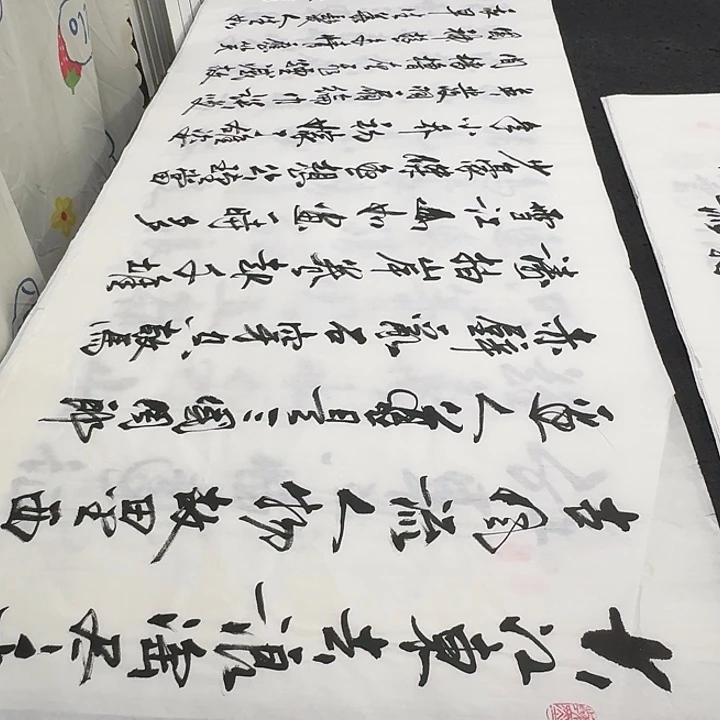 大江東去浪淘尽
古风流人物故垒西
邊人道是三國周郎
赤壁亂石穿空驚
濤拍岸卷起千堆
雪江山如畫一時多
少豪傑遥想公瑾當
年小乔初嫁了雄姿
英發羽扇綸巾談笑
間檣櫓灰飛煙滅故
國神遊多情應笑我
早生華髮人生如